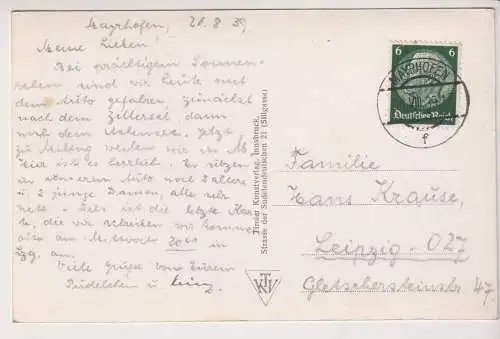 Mayrhofen, 20.8.39
Meine Lieben!
Bei prächtigem Sonnen-
schein sind wir heute mit
dem Auto gefahren, zunächst
nach dem Zillertal, dann
nach dem Achensee. Jetzt
zu Mittag werden wir in M.
Hier ist es herrlich. Es sitzen
in unserem Auto noch 2 ältere
u. 2 junge Damen, alle sehr
nett. Dies ist die letzte Kar-
te, die wir schreiben, wir kommen
also am Mittwoch 20⁰⁰ in
Lpzg. an.
Viele Grüße von Euren
u. Heinz
Tiroler Kunstverlag, Innsbruck,
Strasse der Sudetendeutschen 21 (Sillgasse)
KTV
6 6
Deutsches Reich
MAYRHOFEN
f
Familie
Hans Krause,
Leipzig-O27
Gletschersteinstr. 47